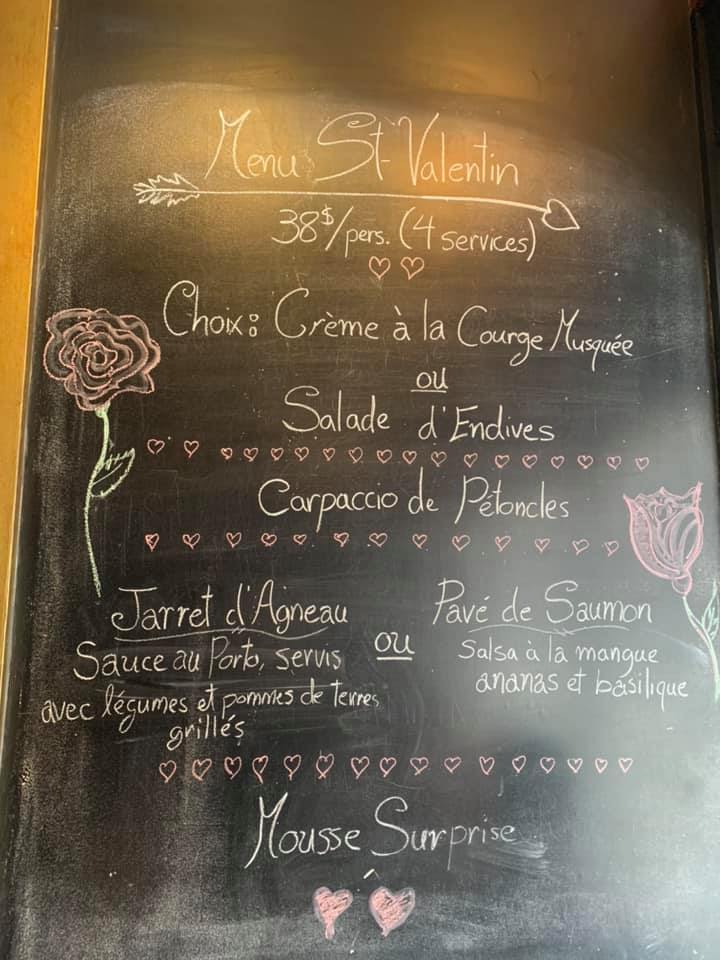 Menu St-Valentin
38$/pers. (4 services)
Choix: Crème à la Courge Musquée
ou
Salade d'Endives
Carpaccio de Pétoncles
Jarret d'Agneau
Sauce au Porto, servis
avec légumes et pommes de terres
grillés
ou
Pavé de Saumon
Salsa à la mangue
ananas et basilique
Mousse Surprise